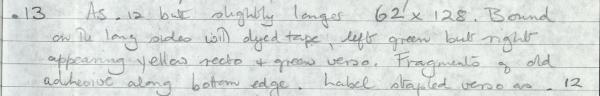 .13 As .12 but slightly longer 62 x 128. Bound
on the long sides with dyed tape, left green but right
appearing yellow recto + green verso. Fragments of old
adhesive along bottom edge. Label stapled verso as .12